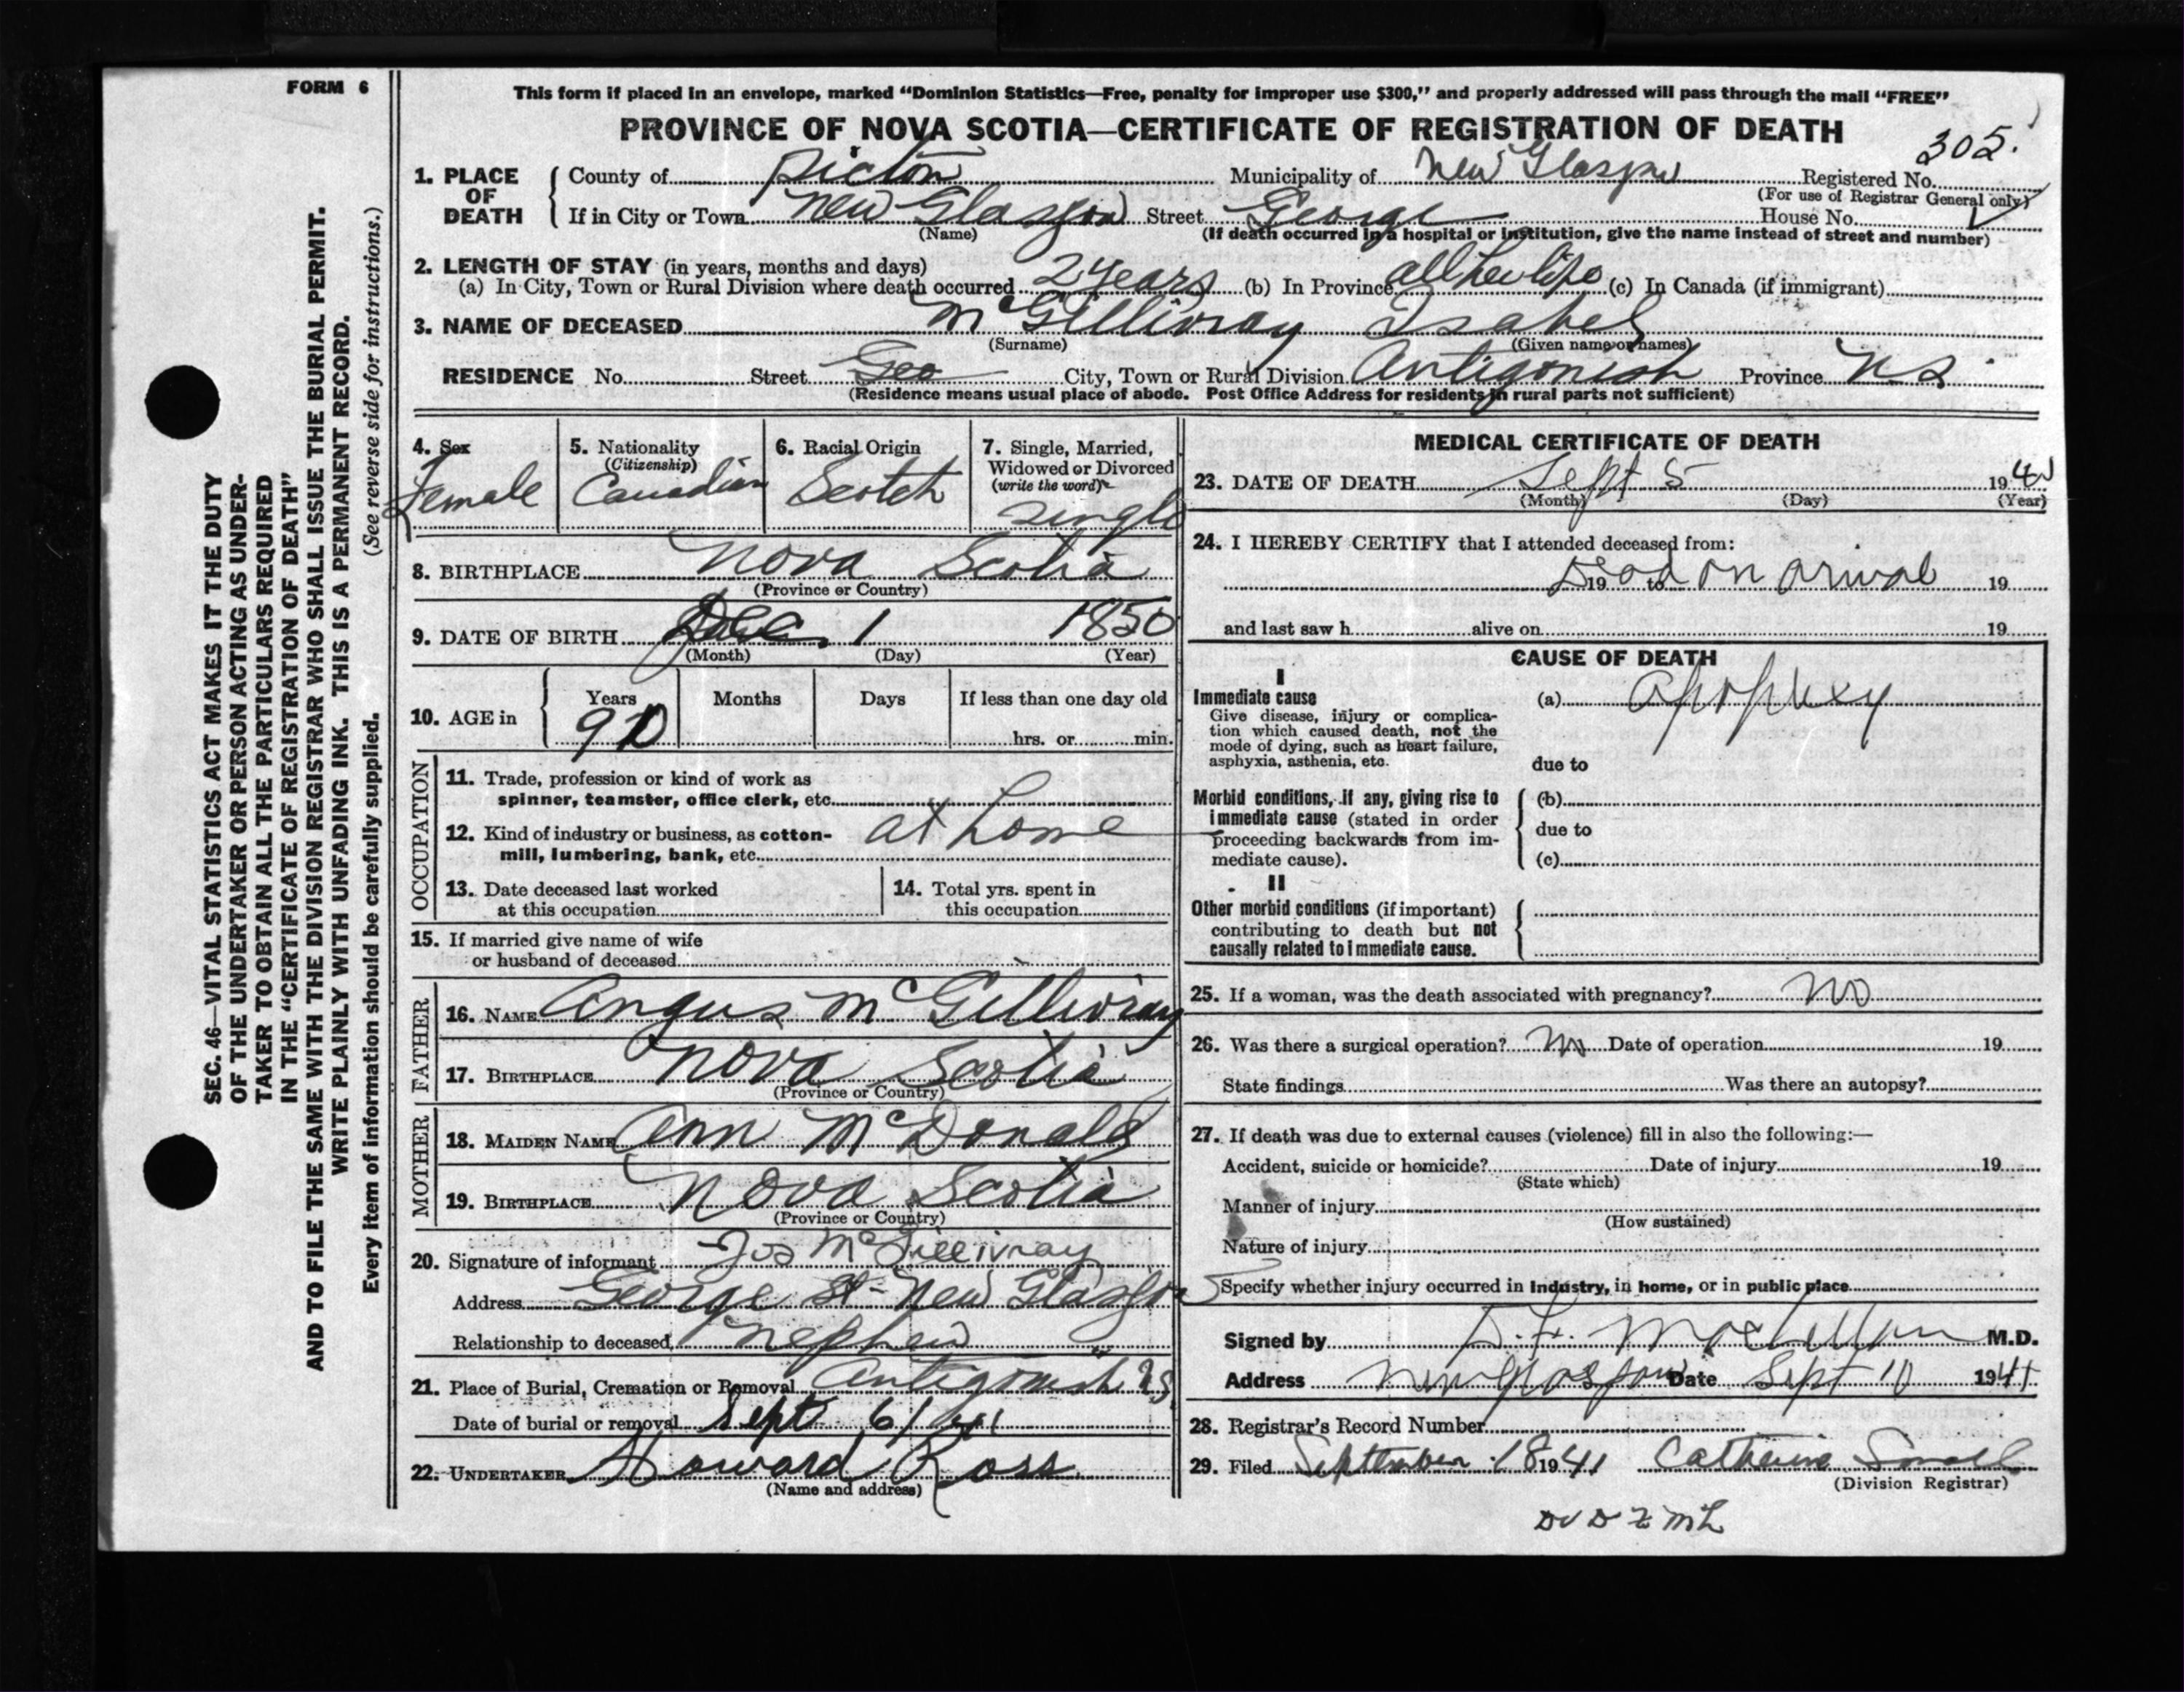 FORM 6
This form if placed in an envelope, marked “Dominion Statistics—Free, penalty for improper use $300,” and properly addressed will pass through the mail “FREE”
PROVINCE OF NOVA SCOTIA—CERTIFICATE OF REGISTRATION OF DEATH
305.
1. PLACE OF DEATH
County of Pictou Municipality of New Glasgow Registered No.
(For use of Registrar General only)
If in City or Town New Glasgow Street George House No.
(Name) (If death occurred in a hospital or institution, give the name instead of street and number)
2. LENGTH OF STAY (in years, months and days)
(a) In City, Town or Rural Division where death occurred 2 years (b) In Province all her life (c) In Canada (if immigrant)
3. NAME OF DECEASED McGillivray Isabel
(Surname) (Given name or names)
RESIDENCE No. Street Geo City, Town or Rural Division Antigonish Province N S
(Residence means usual place of abode. Post Office Address for residents in rural parts not sufficient)
4. Sex
Female
5. Nationality
(Citizenship)
Canadian
6. Racial Origin
Scotch
7. Single, Married,
Widowed or Divorced
(write the word)
Single
8. BIRTHPLACE Nova Scotia
(Province or Country)
9. DATE OF BIRTH 1 1850
(Month) (Day) (Year)
10. AGE in
Years Months Days If less than one day old
90 hrs. or min.
OCCUPATION
11. Trade, profession or kind of work as
spinner, teamster, office clerk, etc.
12. Kind of industry or business, as cotton-
mill, lumbering, bank, etc.
at home
13. Date deceased last worked
at this occupation
14. Total yrs. spent in
this occupation
15. If married give name of wife
or husband of deceased
FATHER
16. NAME Angus McGillivray
17. BIRTHPLACE Nova Scotia
(Province or Country)
MOTHER
18. MAIDEN NAME Ann McDonald
19. BIRTHPLACE Nova Scotia
(Province or Country)
20. Signature of informant Jos McGillivray
Address George St- New Glasgow
Relationship to deceased nephew
21. Place of Burial, Cremation or Removal Antigonish NS
Date of burial or removal Sept 6/41
22. UNDERTAKER Howard Ross
(Name and address)
MEDICAL CERTIFICATE OF DEATH
23. DATE OF DEATH Sept 5 1941
(Month) (Day) (Year)
24. I HEREBY CERTIFY that I attended deceased from:
Dead on arival
19 to 19
and last saw h alive on 19
CAUSE OF DEATH
I
Immediate cause
Give disease, injury or complica-
tion which caused death, not the
mode of dying, such as heart failure,
asphyxia, asthenia, etc.
(a) Apoplexy
due to
Morbid conditions, if any, giving rise to
immediate cause (stated in order
proceeding backwards from im-
mediate cause).
(b)
due to
(c)
II
Other morbid conditions (if important)
contributing to death but not
causally related to immediate cause.
25. If a woman, was the death associated with pregnancy? No
26. Was there a surgical operation? No Date of operation 19
State findings Was there an autopsy?
27. If death was due to external causes (violence) fill in also the following:—
Accident, suicide or homicide? Date of injury 19
(State which)
Manner of injury
(How sustained)
Nature of injury
Specify whether injury occurred in industry, in home, or in public place
Signed by D. F. MacLellan M.D.
Address New Glasgow Date Sept 10 1941
28. Registrar's Record Number
29. Filed September 18 1941 Catherine Small
(Division Registrar)
SEC. 46—VITAL STATISTICS ACT MAKES IT THE DUTY
OF THE UNDERTAKER OR PERSON ACTING AS UNDER-
TAKER TO OBTAIN ALL THE PARTICULARS REQUIRED
IN THE “CERTIFICATE OF REGISTRATION OF DEATH”
AND TO FILE THE SAME WITH THE DIVISION REGISTRAR WHO SHALL ISSUE THE BURIAL PERMIT.
WRITE PLAINLY WITH UNFADING INK. THIS IS A PERMANENT RECORD.
Every item of information should be carefully supplied. (See reverse side for instructions.)